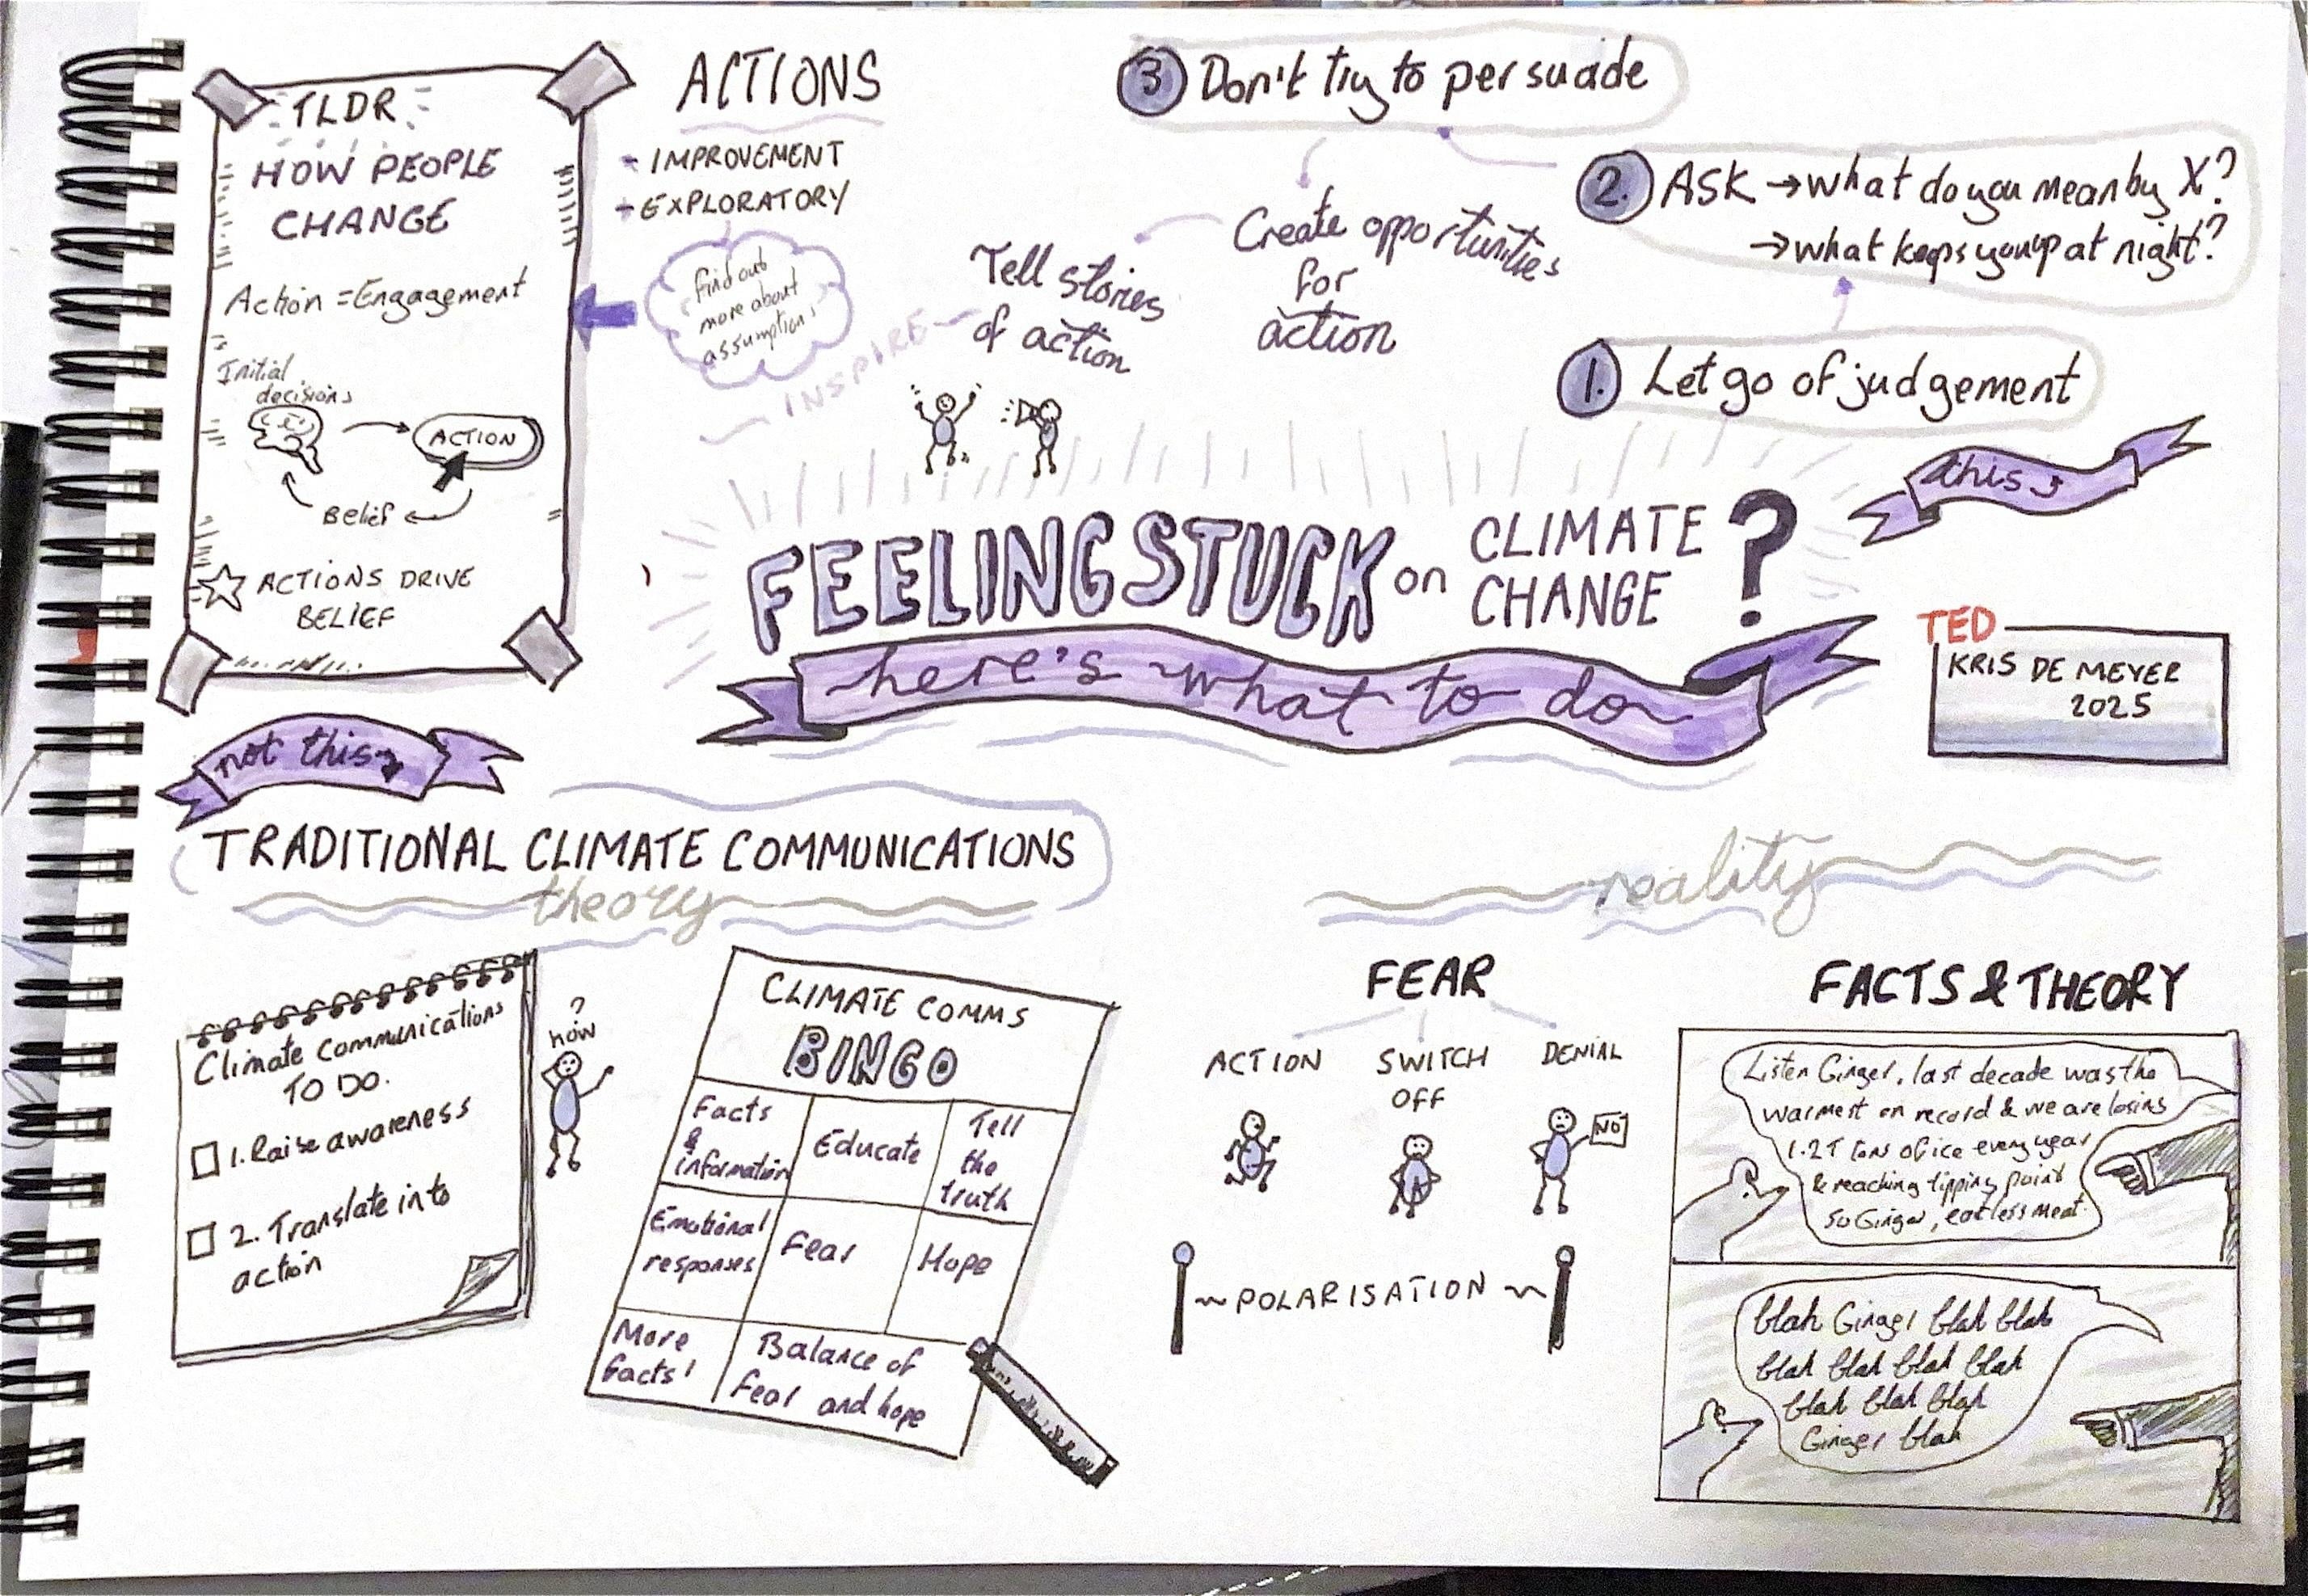 TLDR
HOW PEOPLE
CHANGE
Action = Engagement
Initial
decisions
ACTION
Belief
ACTIONS DRIVE
BELIEF
ACTIONS
- IMPROVEMENT
- EXPLORATORY
find out
more about
assumptions
INSPIRE
Tell stories
of action
Create opportunities
for
action
3 Don't try to persuade
2. ASK → what do you mean by X?
→ what keeps you up at night?
1. Let go of judgement
this
FEELING STUCK on CLIMATE
CHANGE ?
here's what to do
TED
KRIS DE MEYER
2025
not this
TRADITIONAL CLIMATE COMMUNICATIONS
theory
Climate communications
TO DO.
1. Raise awareness
2. Translate into
action
?
how
CLIMATE COMMS
BINGO
Facts
&
information
Educate
Tell
the
truth
Emotional
responses
Fear
Hope
More
facts!
Balance of
fear and hope
reality
FEAR
ACTION
SWITCH
OFF
DENIAL
NO
POLARISATION
FACTS & THEORY
Listen Ginger, last decade was the
warmest on record & we are losing
1.2T tons of ice every year
& reaching tipping point
so Ginger, eat less meat.
blah Ginger blah blah
blah blah blah blah
blah blah blah
Ginger blah